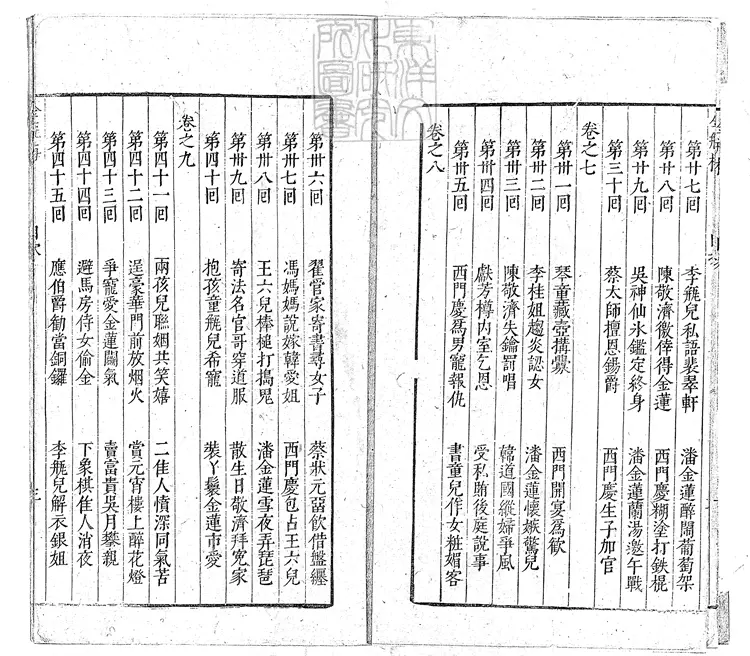 金瓶梅
目次
第卅七回 李瓶兒私語翡翠軒 潘金蓮醉鬧葡萄架
第卅八回 陳敬濟徼倖得金蓮 西門慶糊塗打鉄棍
第卅九回 吳神仙氷鑑定終身 潘金蓮蘭湯邀午戰
第三十回 蔡太師擅恩錫爵 西門慶生子加官
卷之七
第卅一回 琴童藏壺搆釁 西門開宴為歡
第卅二回 李桂姐趨炎認女 潘金蓮懷嫉驚兒
第卅三回 陳敬濟失鑰罰唱 韓道國縱婦爭風
第卅四回 獻芳樽内室乞恩 受私賄後庭說事
第卅五回 西門慶為男寵報仇 書童兒作女粧媚客
卷之八
東洋文化研究所圖書
第卅六回 翟管家寄書尋女子 蔡狀元畱飲借盤纏
第卅七回 馮媽媽說嫁韓愛姐 西門慶包占王六兒
第卅八回 王六兒棒槌打搗鬼 潘金蓮雪夜弄琵琶
第卅九回 寄法名官哥穿道服 散生日敬濟拜冤家
第四十回 抱孩童瓶兒希寵 裝丫鬟金蓮市愛
卷之九
第四十一回 兩孩兒聮姻共笑嬉 二佳人憤深同氣苦
第四十二回 逞豪華門前放烟火 賞元宵樓上醉花燈
第四十三回 爭寵愛金蓮鬬氣 賣富貴吳月攀親
第四十四回 避馬房侍女偷金 下象棋佳人消夜
第四十五回 應伯爵勸當銅鑼 李瓶兒解衣銀姐
金瓶梅
目次